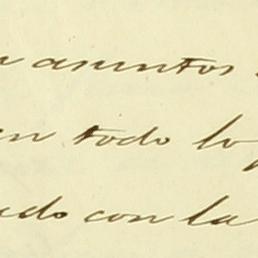 asuntos
en todo lo
ado con la